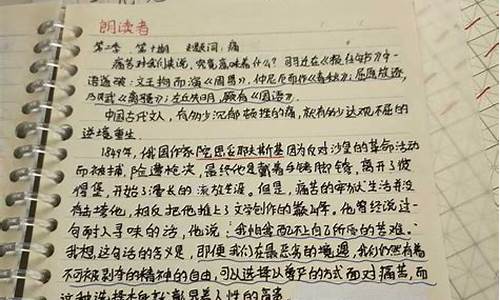 朗读者
第二季 第十期 主题词：痛
痛苦对我们来说，究竟意味着什么？司马迁在《报任安书》中一
语道破：文王拘而演《周易》，仲尼厄而作《春秋》；屈原放逐，
乃赋《离骚》；左丘失明，厥有《国语》。
中国古代文人，有多少沉郁顿挫的痛，就有多少达观不屈的
逆境重生。
1849年，俄国作家陀思妥耶夫斯基因为反对沙皇的革命活动
而被捕，险遭枪决，最终他是戴着手铐脚镣，离开了彼
得堡，开始了漫长的流放生涯。但是，痛苦的牢狱生活并没
有击垮他，相反把他推上了文学创作的巅峰。他曾经说过一
句耐人寻味的话，他说：我怕我配不上自己所受的苦难。
我想，这句话的含义是，即便我们在最恶劣的境遇，我们仍然有着
不可被剥夺的精神的自由，可以选择以尊严的方式面对痛苦，而
这种选择本身就彰显着人性的高贵